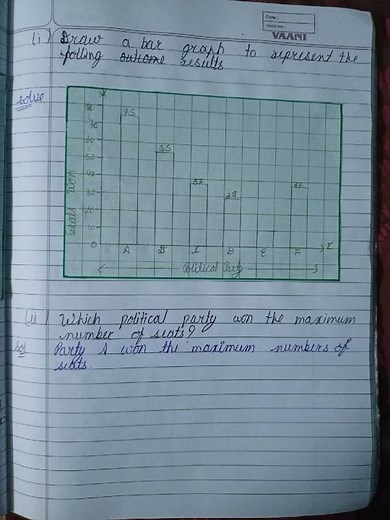 Date :
VAANI
(i) Draw a bar graph to represent the
polling outcome results
solve
80
75
70
60
55
50
40
37
30
29
37
20
10
0
A B C D E F X
Seats won
Political Party
(ii) Which political party won the maximum
number of seats?
Sol Party A won the maximum numbers of
seats.